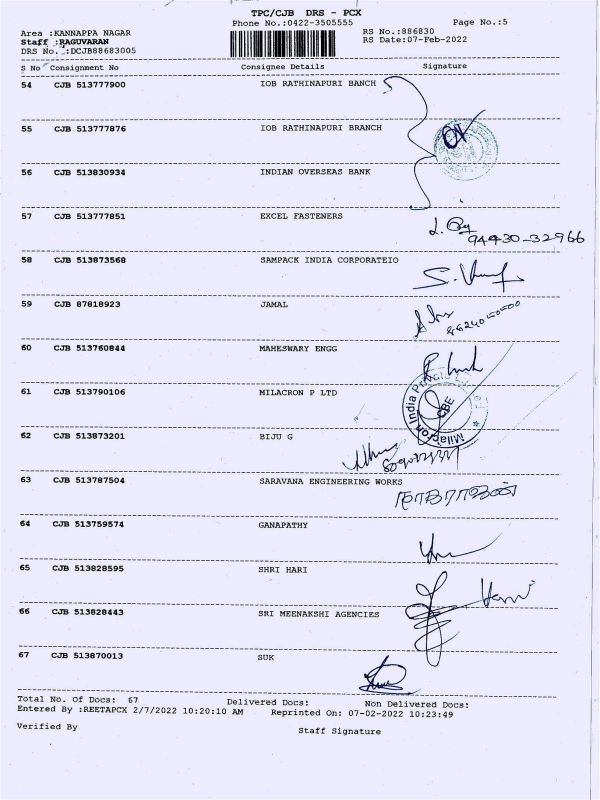 TPC/CJB DRS - PCX
Phone No.:0422-3505555 Page No.:5
Area :KANNAPPA NAGAR RS No.:886830
Staff :RAGUVARAN RS Date:07-Feb-2022
DRS No. :DCJB88683005
S No Consignment No Consignee Details Signature
54 CJB 513777900 IOB RATHINAPURI BANCH
55 CJB 513777876 IOB RATHINAPURI BRANCH
56 CJB 513830934 INDIAN OVERSEAS BANK
57 CJB 513777851 EXCEL FASTENERS
94430-32966
58 CJB 513873568 SAMPACK INDIA CORPORATEIO
59 CJB 87818923 JAMAL
60 CJB 513760844 MAHESWARY ENGG
61 CJB 513790106 MILACRON P LTD
Milacron India Private CBE
62 CJB 513873201 BIJU G
63 CJB 513787504 SARAVANA ENGINEERING WORKS
64 CJB 513759574 GANAPATHY
65 CJB 513828595 SHRI HARI
66 CJB 513828443 SRI MEENAKSHI AGENCIES
67 CJB 513870013 SUK
Total No. Of Docs: 67 Delivered Docs: Non Delivered Docs:
Entered By :REETAPCX 2/7/2022 10:20:10 AM Reprinted On: 07-02-2022 10:23:49
Verified By Staff Signature